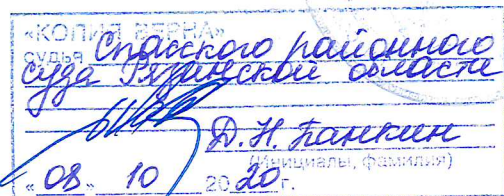 «КОПИЯ ВЕРНА»
судья Спасского районного
суда Рязанской области
Д. Н. Панкин
(Инициалы, фамилия)
«08» 10 2020г.